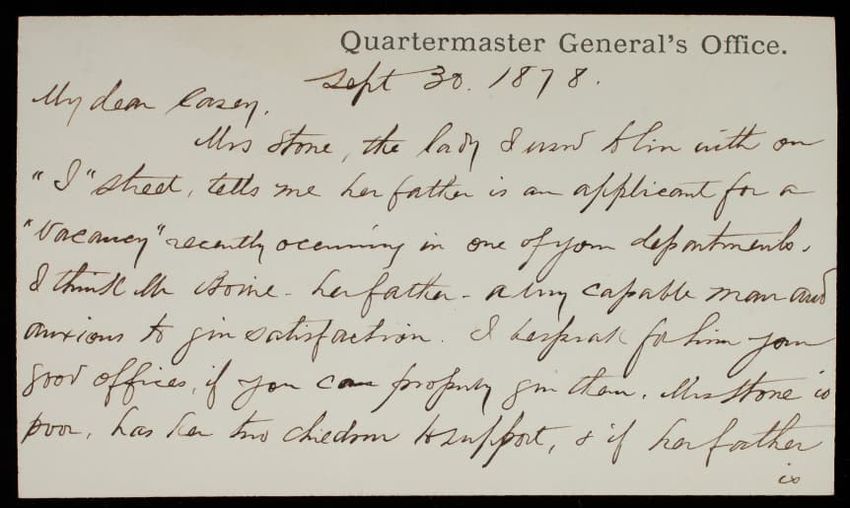 Quartermaster General's Office.
Sept 30. 1878.
My dear Casey,
Mrs Stone, the lady I used to live with on
"I" street, tells me her father is an applicant for a
"Vacancy" recently occurring in one of your departments.
I think Mr - her father - a very capable man and
anxious to give satisfaction. I bespeak for him your
good offices, if you can properly give them. Mrs Stone is
poor, has her two children to support, & if her father
is